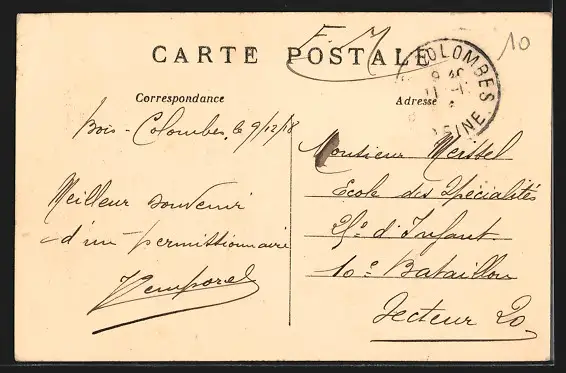 F. M.
10
CARTE POSTALE
COLOMBES
SEINE
Correspondance
Adresse
Bois-Colombes, le 9/12/18
Meilleur souvenir
d'un permissionnaire
Monsieur
Ecole des Spécialités
d'Infant.
10e Bataillon
Secteur 20